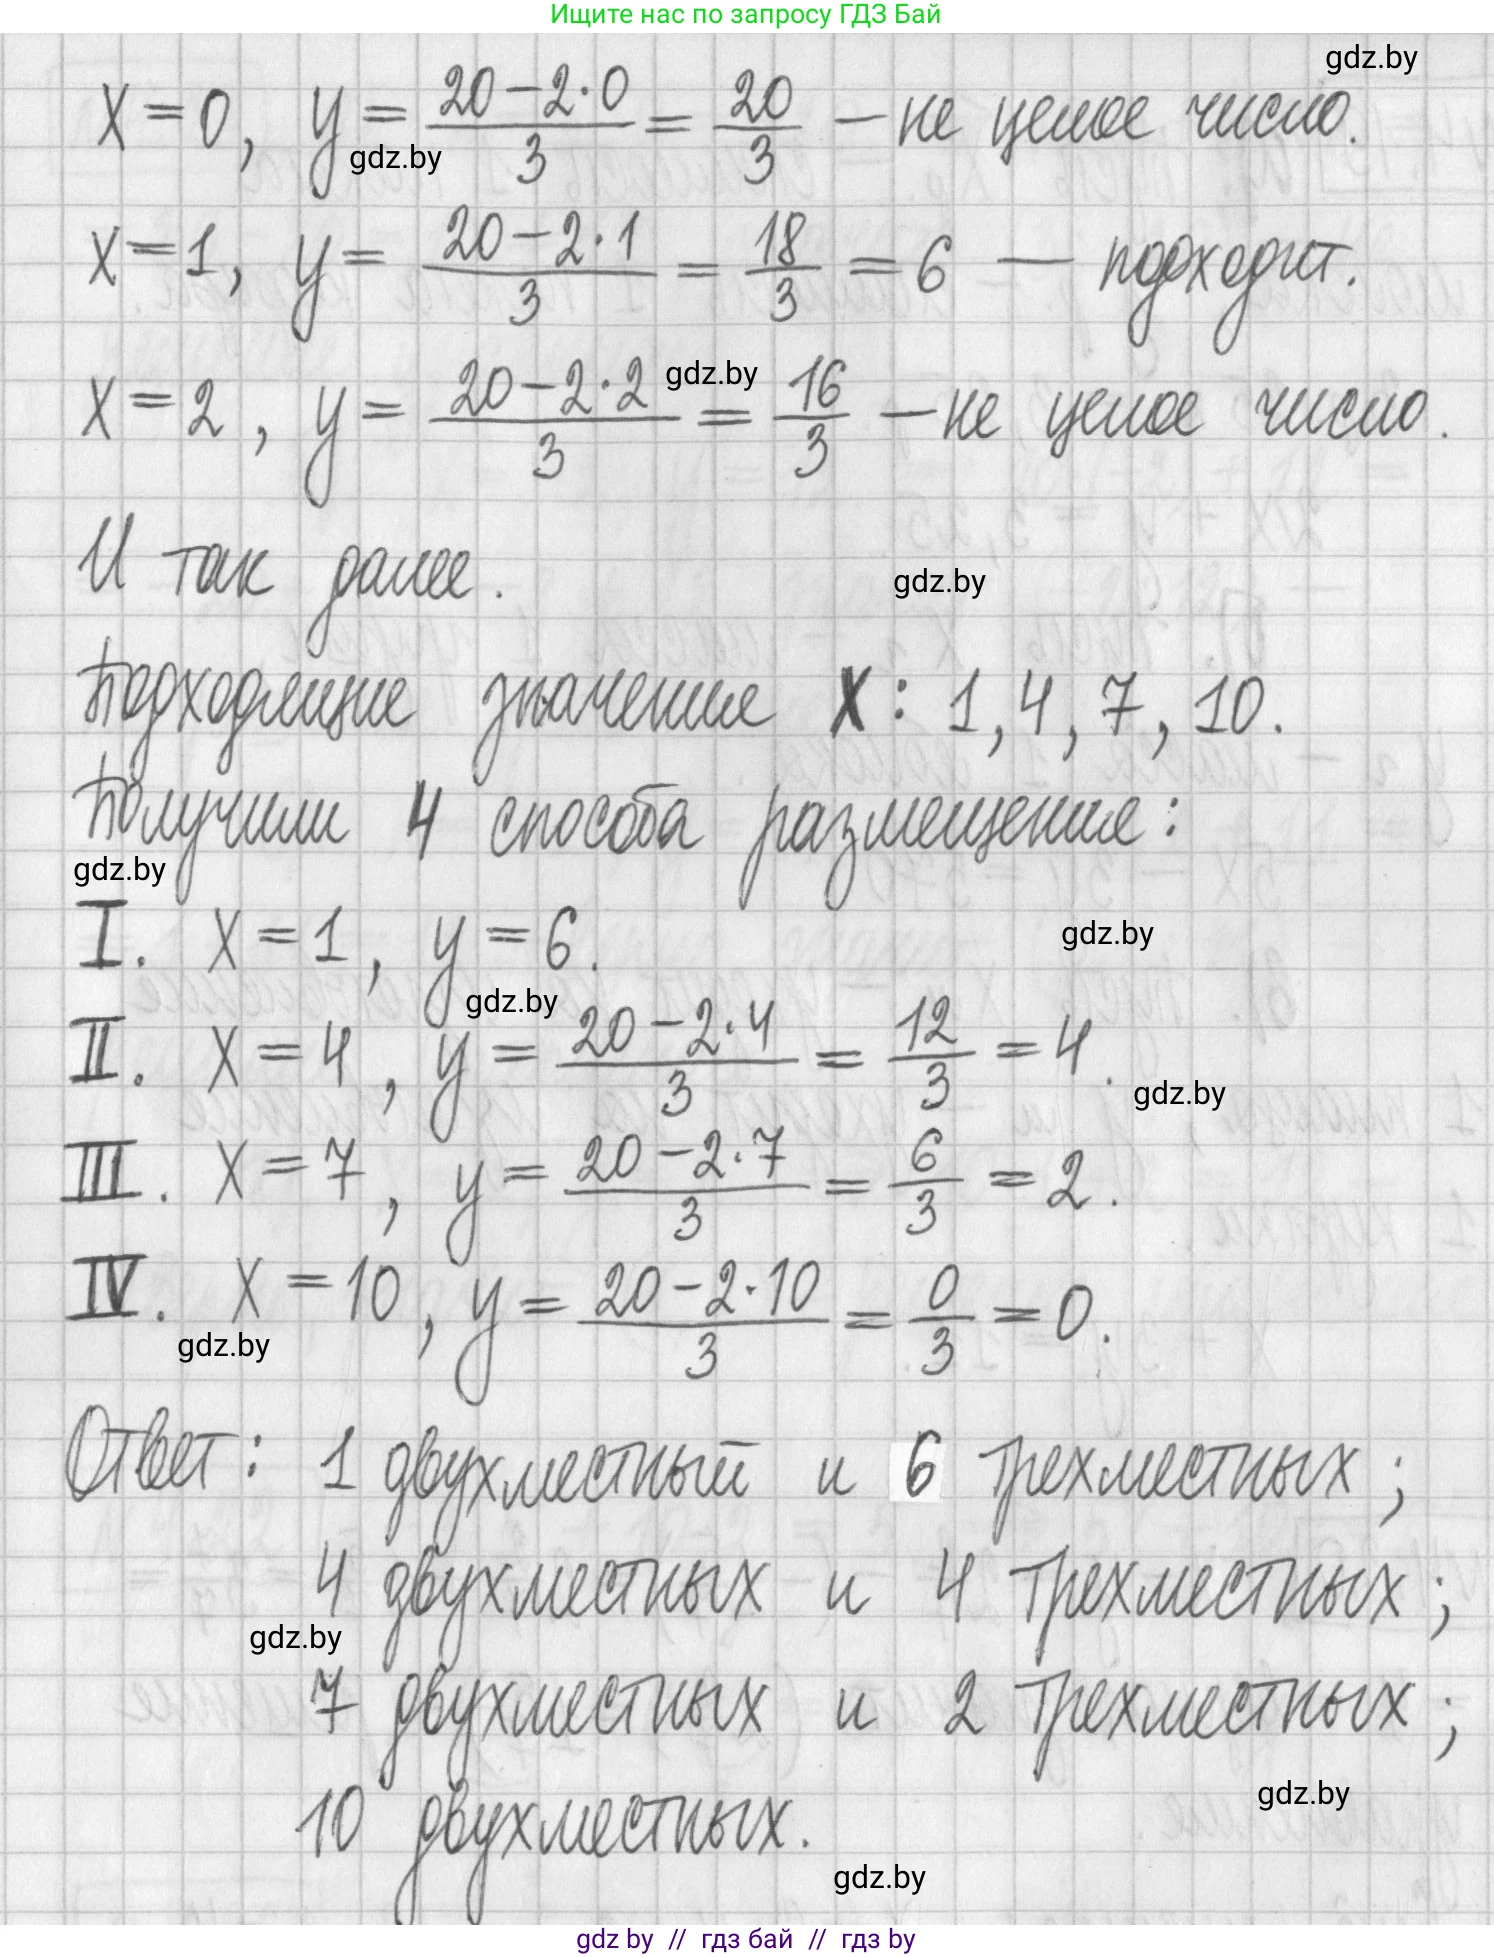 Ищите нас по запросу ГДЗ Бай
gdz.by
x=0, y= (20-2·0)/3 = 20/3 — не целое число.
gdz.by
x=1, y= (20-2·1)/3 = 18/3 = 6 — подходит.
x=2, y= (20-2·2)/3 = 16/3 — не целое число.
gdz.by
И так далее.
gdz.by
Подходящие значение x: 1, 4, 7, 10.
Получили 4 способа размещение:
gdz.by
I. x=1, y=6.
gdz.by
gdz.by
II. x=4, y= (20-2·4)/3 = 12/3 = 4.
gdz.by
III. x=7, y= (20-2·7)/3 = 6/3 = 2.
IV. x=10, y= (20-2·10)/3 = 0/3 = 0.
gdz.by
Ответ: 1 двухместный и 6 трехместных;
4 двухместных и 4 трехместных;
gdz.by
7 двухместных и 2 трехместных;
gdz.by
10 двухместных.
gdz.by
gdz by // гдз бай // гдз by